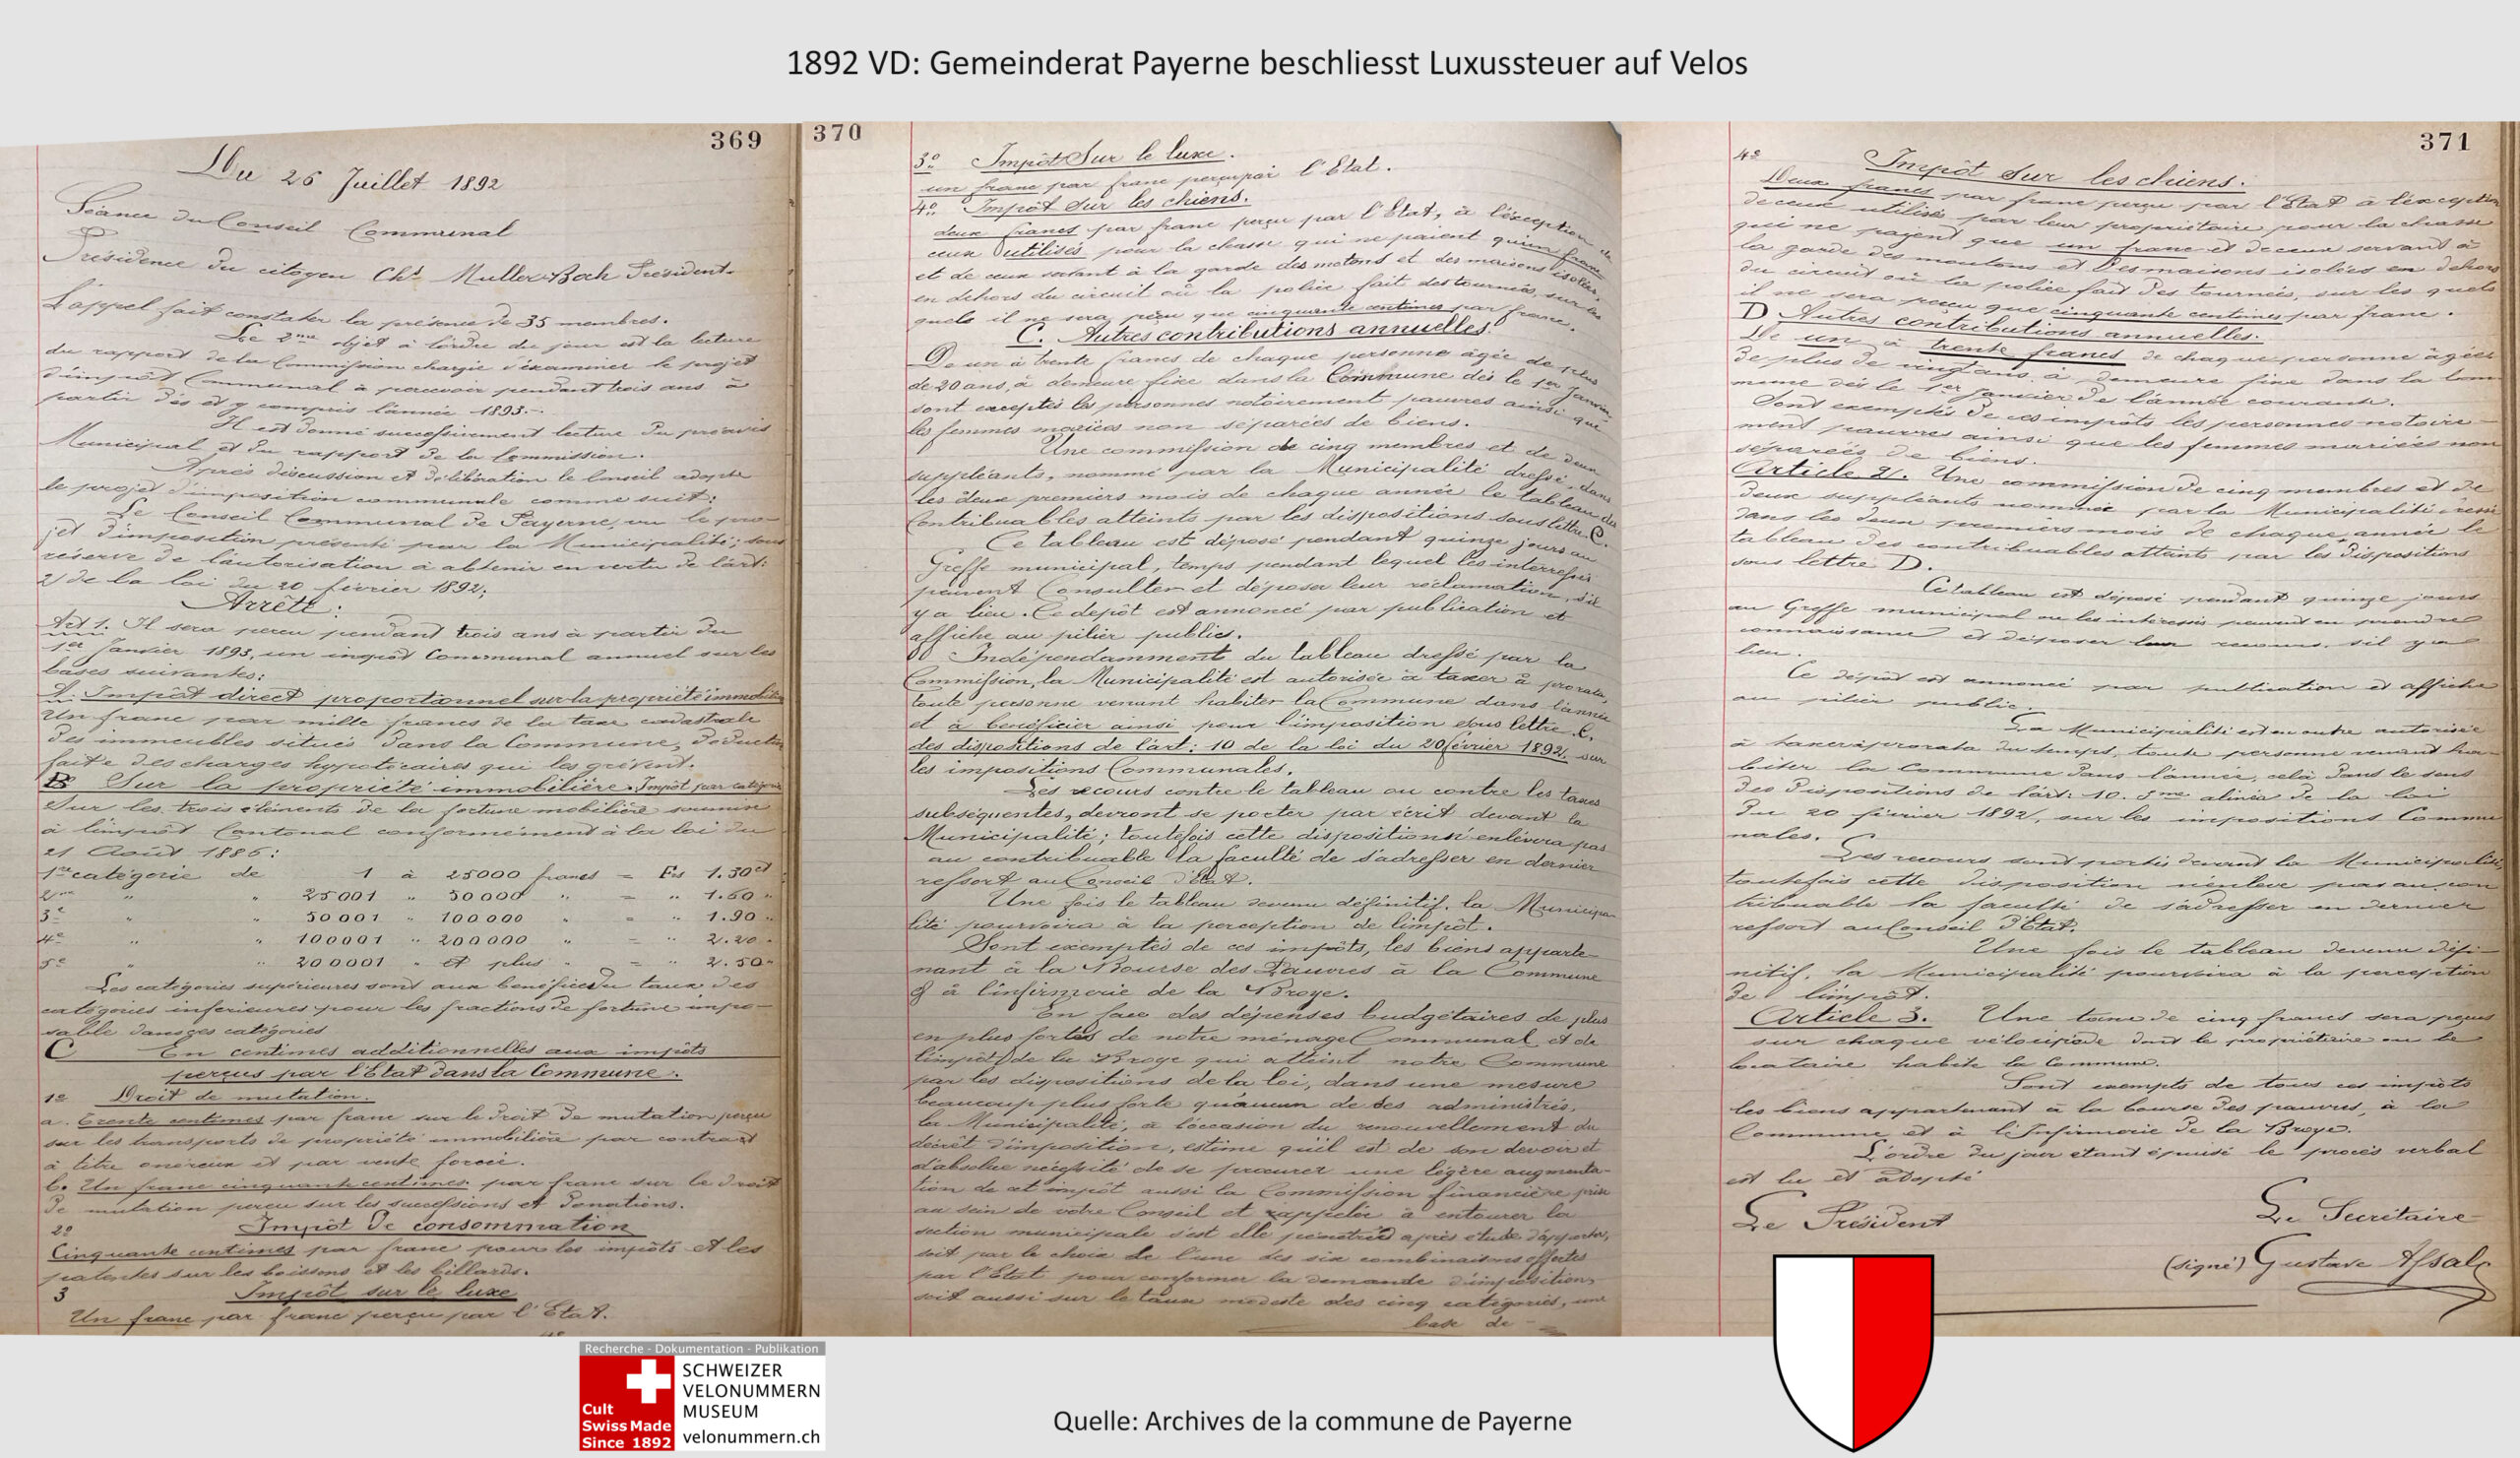 1892 VD: Gemeinderat Payerne beschliesst Luxussteuer auf Velos
369
Du 26 Juillet 1892
Séance du Conseil Communal
Présidence du citoyen Chs Muller-Bach Président.
L'appel fait constater la présence de 35 membres.
Le 2me objet à l'ordre du jour est la lecture
du rapport de la Commission chargée d'examiner le projet
d'impôt Communal à percevoir pendant trois ans à
partir dès et y compris l'année 1893.-.
Il est donné successivement lecture du préavis
Municipal et du rapport de la Commission.
Après discussion et délibération le Conseil adopte
le projet d'imposition communale comme suit:
Le Conseil Communal de Payerne, vu le pro-
jet d'imposition présenté par la Municipalité; sous
réserve de l'autorisation à obtenir en vertu de l'art:
2 de la loi du 20 février 1892;
Arrête:
Art 1. Il sera perçu pendant trois ans à partir du
1er Janvier 1893, un impôt Communal annuel sur les
bases suivantes:
A. Impôt direct proportionnel sur la propriété immobilière
Un franc par mille francs de la taxe cadastrale
des immeubles situés dans la Commune, déduction
faite des charges hypotécaires qui les grèvent.
B Sur la propriété immobilière. Impôt par catégorie
Sur les trois éléments de la fortune mobilière soumise
à l'impôt Cantonal conformément à la loi du
21 Août 1886:
1re catégorie de 1 à 25000 francs = Frs 1.30ct
2me " " 25001 " 50000 " = " 1.60 "
3e " " 50001 " 100000 " = " 1.90 "
4e " " 100001 " 200000 " = " 2.20 "
5e " " 200001 " et plus " = " 2.50 "
Les catégories supérieures sont aux bénéfices du taux des
catégories inférieures pour les fractions de fortune impo-
sable dans ces catégories
C En centimes additionnelles aux impôts
perçus par l'Etat dans la Commune.
1o Droit de mutation.
a. Trente centimes par franc sur le droit de mutation perçu
sur les transports de propriété immobilière par contrat
à titre onéreux et par vente forcée.
b. Un franc cinquante centimes par franc sur le droit
de mutation perçu sur les successions et Donations.
2o Impôt de consommation
Cinquante centimes par franc pour les impôts et les
patentes sur les boissons et les billards.
3 Impôt sur le luxe
Un franc par franc perçu par l'Etat.
4o
370
3o Impôt Sur le luxe.
un franc par franc perçu par l'Etat.
4o Impôt Sur les chiens.
deux francs par franc perçu par l'Etat, à l'exception de
ceux utilisés pour la chasse qui ne paient qu'un franc
et de ceux servant à la garde des moutons et des maisons isolées,
en dehors du circuit où la police fait des tournées, sur les
quels il ne sera perçu que cinquante centimes par franc.
C. Autres contributions annuelles.
De un à trente francs de chaque personne âgée de plus
de 20 ans, à demeure fixe dans la Commune dès le 1er Janvier
sont exceptés les personnes notoirement pauvres ainsi que
les femmes mariées non séparées de biens.
Une commission de cinq membres et de deux
suppléants, nommé par la Municipalité dresse, dans
les deux premiers mois de chaque année le tableau des
Contribuables atteints par les dispositions sous lettre C.
Ce tableau est déposé pendant quinze jours au
Greffe municipal, temps pendant lequel les interressés
peuvent Consulter et déposer leur réclamation, s'il
y a lieu. Ce dépôt est annoncé par publication et
affiche au pilier public.
Indépendamment du tableau dressé par la
Commission, la Municipalité est autorisée à taxer à prorata,
toute personne venant habiter la Commune dans l'année
et à bénéficier ainsi pour l'imposition sous lettre C.
des dispositions de l'art: 10 de la loi du 20 février 1892, sur
les impositions Communales.
Les recours contre le tableau ou contre les taxes
subséquentes, devront se porter par écrit devant la
Municipalité; toutefois cette disposition n'enlèvera pas
au contribuable la faculté de s'adresser en dernier
ressort au Conseil d'Etat.
Une fois le tableau devenu définitif, la Municipa
lité pourvoira à la perception de l'impôt.
Sont exemptés de ces impôts, les biens apparte-
nant à la Bourse des Pauvres à la Commune
& à l'infirmerie de la Broye.
En face des dépenses budgétaires de plus
en plus fortes de notre ménage Communal et de
l'impôt de la Broye qui atteint notre Commune
par les dispositions de la loi, dans une mesure
beaucoup plus forte qu'aucun de ses administrés,
la Municipalité, à l'occasion du renouvellement du
décrêt d'imposition, estime qu'il est de son devoir et
d'absolue nécessité de se procurer une légère augmenta-
tion de cet impôt aussi la Commission financière pris
au sein de votre Conseil et rappelée à entourer la
section municipale s'est elle pénétrée après étude d'apporter,
soit par le choix de l'une des six combinaisons offertes
par l'Etat pour conformer la demande d'imposition,
soit aussi sur le taux modeste des cinq catégories, une
base de -
371
4o Impôt sur les chiens.
Deux francs par franc perçu par l'Etat à l'exception
de ceux utilisés par leur propriétaire pour la chasse
qui ne payent que un franc et de ceux servant à
la garde des moutons et des maisons isolées en dehors
du circuit où la police fait des tournées, sur les quels
il ne sera perçu que cinquante centimes par franc.
D Autres contributions annuelles.
De un à trente francs de chaque personne âgée
de plus de vingt ans à demeure fixe dans la Com
mune dès le 1er Janvier de l'année courante.
Sont exemptés de ces impôts les personnes notoire-
ment pauvres ainsi que les femmes mariées non
séparées de biens.
Article 2. Une commission de cinq membres et de
deux suppléants nommée par la Municipalité dresse
dans les deux premiers mois de chaque année le
tableau des contribuables atteints par les dispositions
sous lettre D.
Ce tableau est déposé pendant quinze jours
au Greffe municipal ou les intéressés peuvent en prendre
connaissance et déposer leur recours, s'il y a
lieu.
Ce dépôt est annoncé par publication et affiche
au pilier public.
La Municipalité est en outre autorisée
à taxer à prorata du temps, toute personne venant ha-
biter la Commune dans l'année, celà dans le sens
des dispositions de l'art: 10. 5me alinéa de la loi
du 20 février 1892, sur les impositions Commu
nales.
Les recours sont portés devant la Municipalité,
toutefois cette disposition n'enlève pas au con
tribuable la faculté de s'adresser en dernier
ressort au Conseil d'Etat.
Une fois le tableau devenu défi-
nitif, la Municipalité pourvoira à la perception
de l'impôt.
Article 3. Une taxe de cinq francs sera perçue
sur chaque vélocipède dont le propriétaire ou le
locataire habite la Commune.
Sont exempts de tous ces impôts
les biens appartenant à la bourse des pauvres, à la
Commune et à l'Infirmerie de la Broye.
L'ordre du jour étant épuisé le procès verbal
est lu et adopté
Le Président
Le Secrétaire
(signé) Gustave Assal
Recherche - Dokumentation - Publikation
SCHWEIZER
VELONUMMERN
MUSEUM
velonummern.ch
Cult
Swiss Made
Since 1892
Quelle: Archives de la commune de Payerne